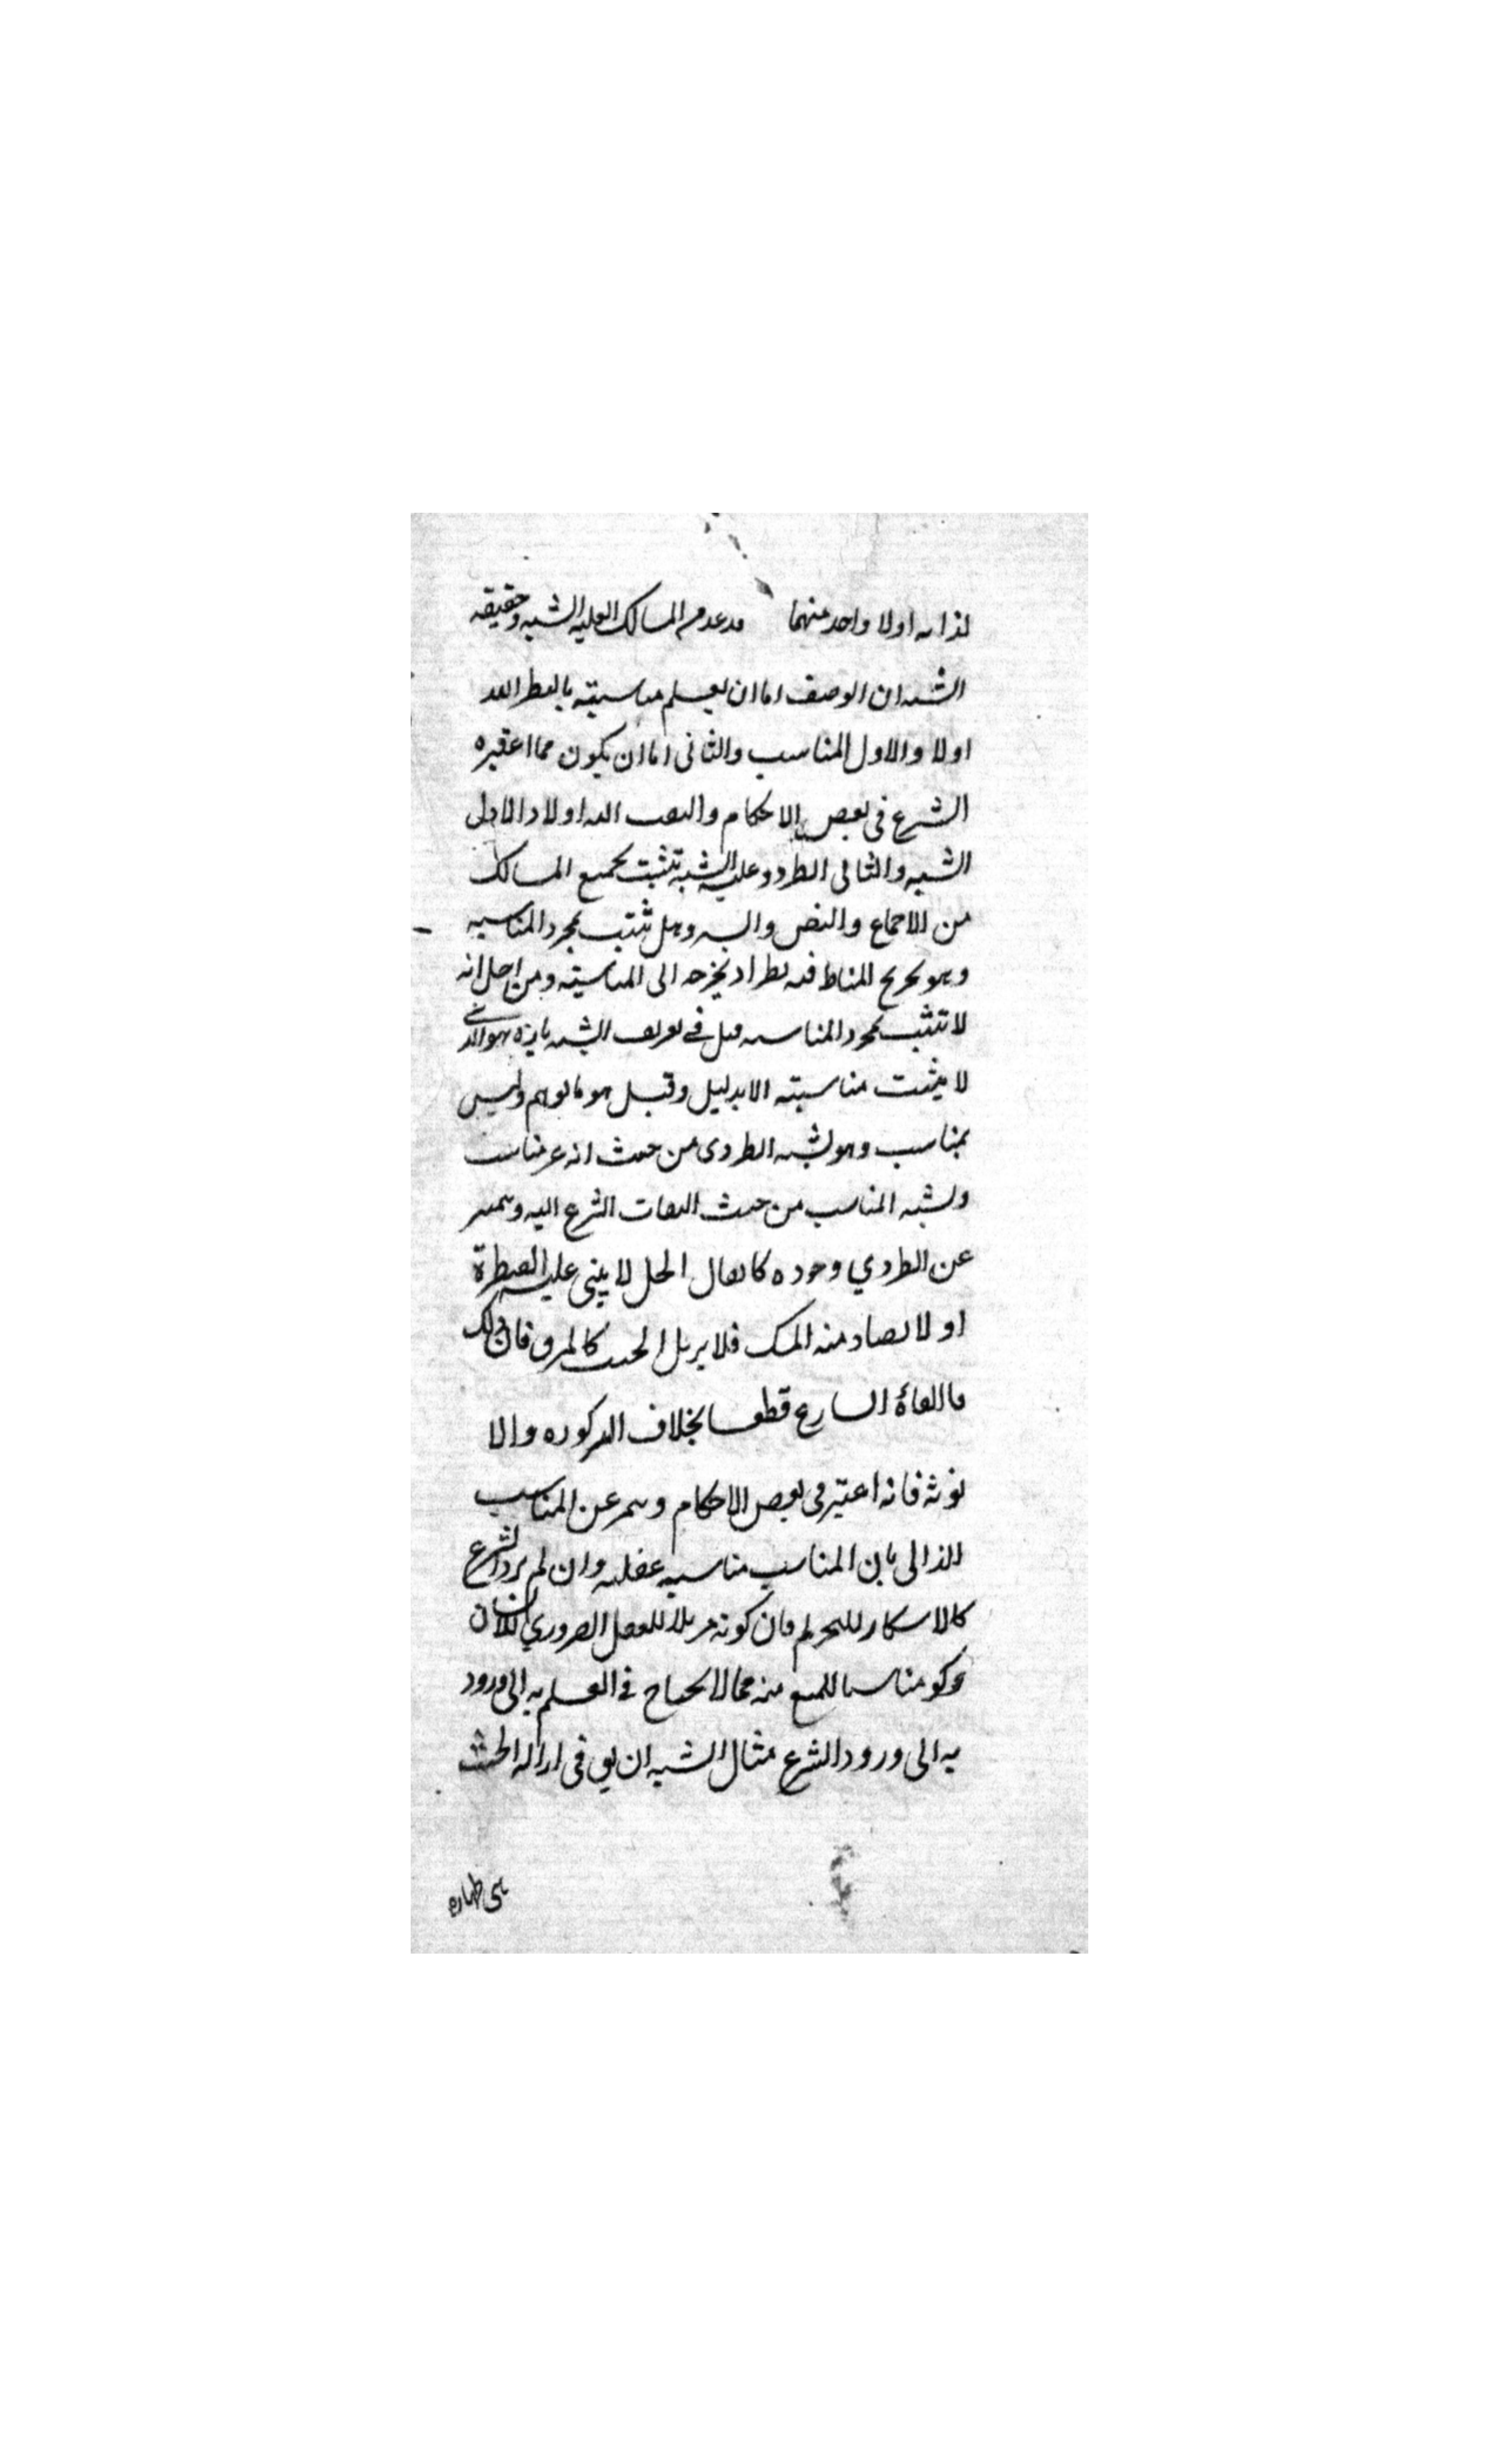 لذاته اولا واحد منهما قد عد من المسالك العلية الشبه وحقيقه
الشبه ان الوصف اما ان يعلم مناسبته بالنظر اليه
اولا والاول المناسب والثانى اما ان يكون مما اعتبره
الشرع فى بعض الاحكام والتفت اليه اولا والاول
الشبه والثانى الطرد وعلية الشبه تثبت بجميع المسالك
من الاجماع والنص والسبر وهل تثبت بمجرد المناسبه
وهو تخريج المناط فيه نظر اذ يخرجه الى المناسبة ومن اجل انه
لا تثبت بمجرد المناسبه قيل فى تعريف الشبه بانه هو الذى
لا يثبت مناسبته الا بدليل وقيل هو ما يوهم وليس
بمناسب وهو يشبه الطردى من حيث انه غير مناسب
ويشبه المناسب من حيث التفات الشرع اليه ويتميز
عن الطردي وجوده كما يقال الخل لا يبنى عليه القنطرة
او لا يصاد منه السمك فلا يزيل الخبث كالمرق فان ذلك
ما الغاه الشارع قطعا بخلاف الذكوره والا
نوثه فانه اعتبر فى بعض الاحكام ويتميز عن المناسب
الذاتى بان المناسب مناسبته عقليه وان لم يرد الشرع
كالاسكار للتحريم فان كونه مزيلا للعقل الضروري للانسان
وكو مناسبا للمنع منه مما لا يحتاج فى العلم به الى ورود
به الى ورود الشرع مثال الشبه ان يق فى ازاله الخبث
هى طهاره